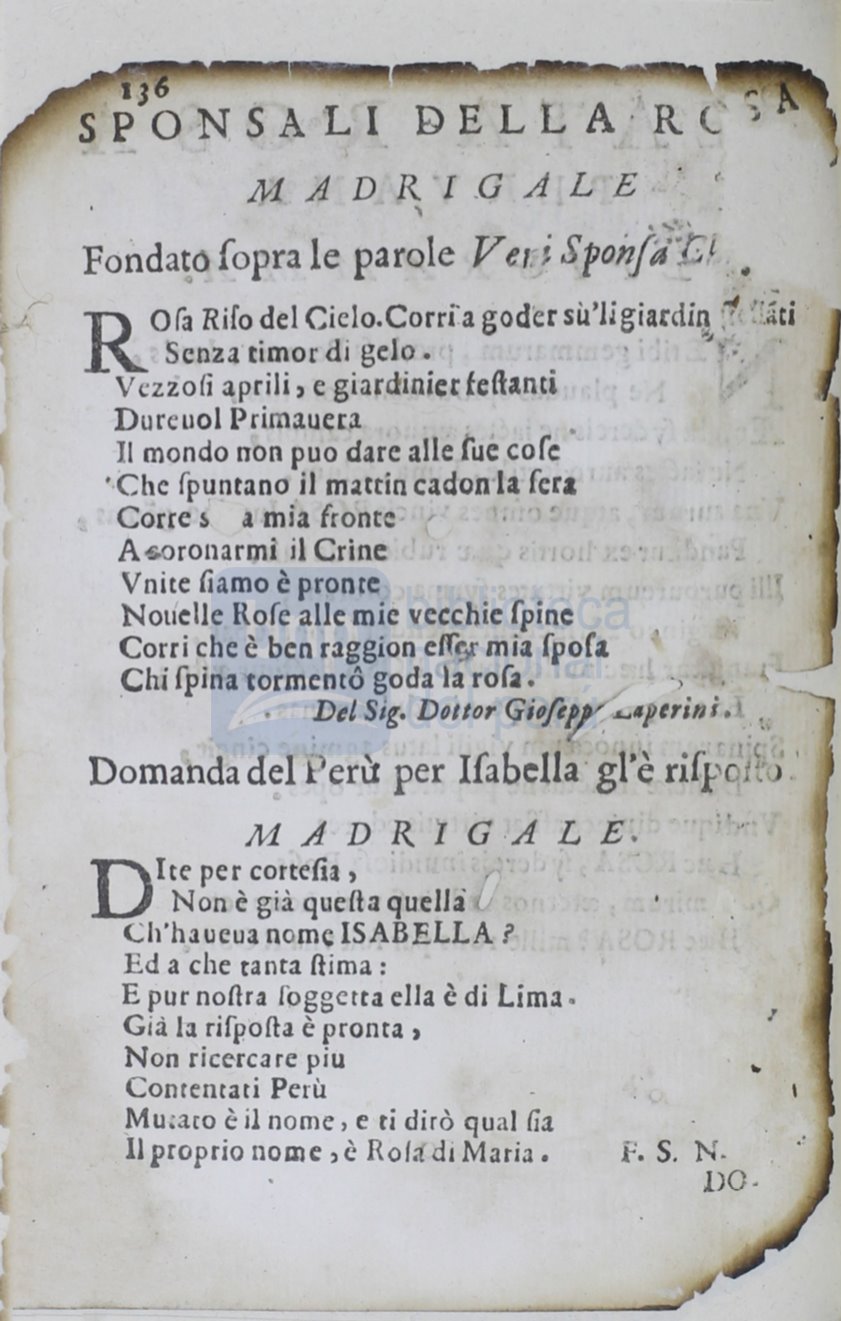 136
SPONSALI DELLA ROSA
MADRIGALE
Fondato ſopra le parole Veni Sponſa
ROſa Riſo del Cielo. Corri a goder sù'li giardin
Senza timor di gelo.
Vezzoſi aprili, e giardinier feſtanti
Dureuol Primauera
Il mondo non puo dare alle ſue coſe
Che ſpuntano il mattin cadon la ſera
Corre s a mia fronte
A coronarmi il Crine
Vnite ſiamo è pronte
Nouelle Roſe alle mie vecchie ſpine
Corri che è ben raggion eſſer mia ſpoſa
Chi ſpina tormentô goda la roſa.
Del Sig. Dottor Gioſepp
Domanda del Perù per Iſabella gl'è riſpoſto
MADRIGALE.
DIte per corteſia,
Non è già queſta quella
Ch'haueua nome ISABELLA?
Ed a che tanta ſtima:
E pur noſtra ſoggetta ella è di Lima.
Già la riſpoſta è pronta,
Non ricercare piu
Contentati Perù
Mutato è il nome, e ti dirò qual ſia
Il proprio nome, è Roſa di Maria. F. S. N.
DO-
biblioteca
nacional
del perú